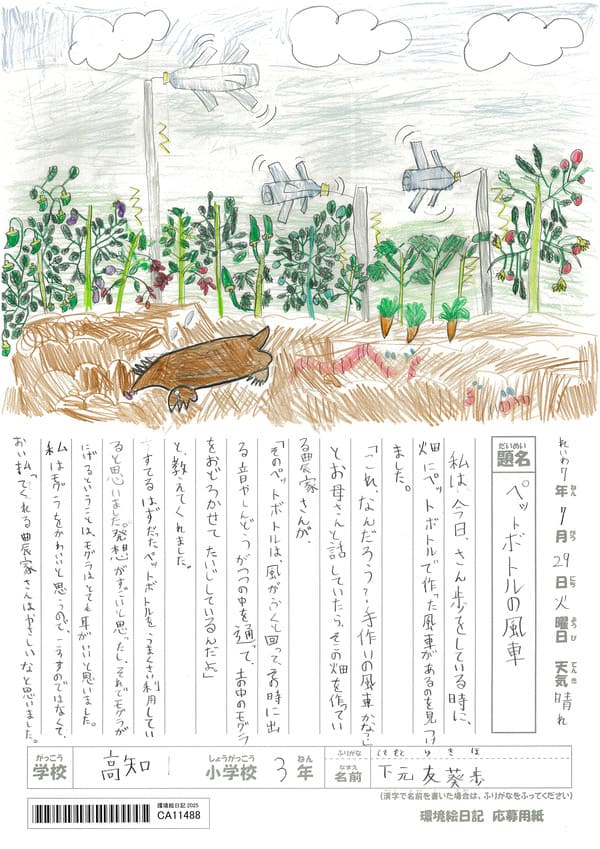 れいわ7年7月29日火曜日 天気晴れ
ねん がつ にち ようび てんき
だいめい
題名 ペットボトルの風車
私は、今日、さん歩をしている時に、
畑にペットボトルで作った風車があるのを見つけ
ました。
「これ、なんだろう？手作りの風車かな？」
とお母さんと話していたら、その畑を作ってい
る農家さんが、
「そのペットボトルは、風がふくと回って、その時に出
る音やしんどうがつつの中を通って、土の中のモグラ
をおどろかせてたいじしているんだよ」
と、教えてくれました。
すてるはずだったペットボトルをうまくさい利用してい
ると思いました。発想がすごいと思ったし、それでモグラが
にげるということは、モグラはとても耳がいいと思いました。
私はモグラをかわいいと思うので、ころすのではなくて、
おい払ってくれる農家さんはやさしいなと思いました。
がっこう しょうがっこう ねん ふりがな しももと りきほ
学校 高知 小学校 3年 なまえ 名前 下元 友葵歩
(漢字で名前を書いた場合は、ふりがなをふってください)
環境絵日記 2025
CA11488
環境絵日記 応募用紙